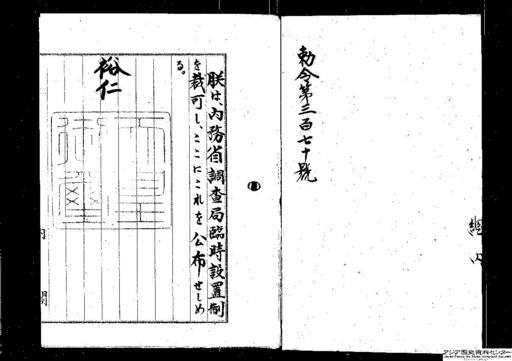 勅令第三百七十號
朕は、内務省調査局臨時設置制
を裁可し、ここにこれを公布せしめ
る。
裕仁
内
閣
アジア歴史資料センター